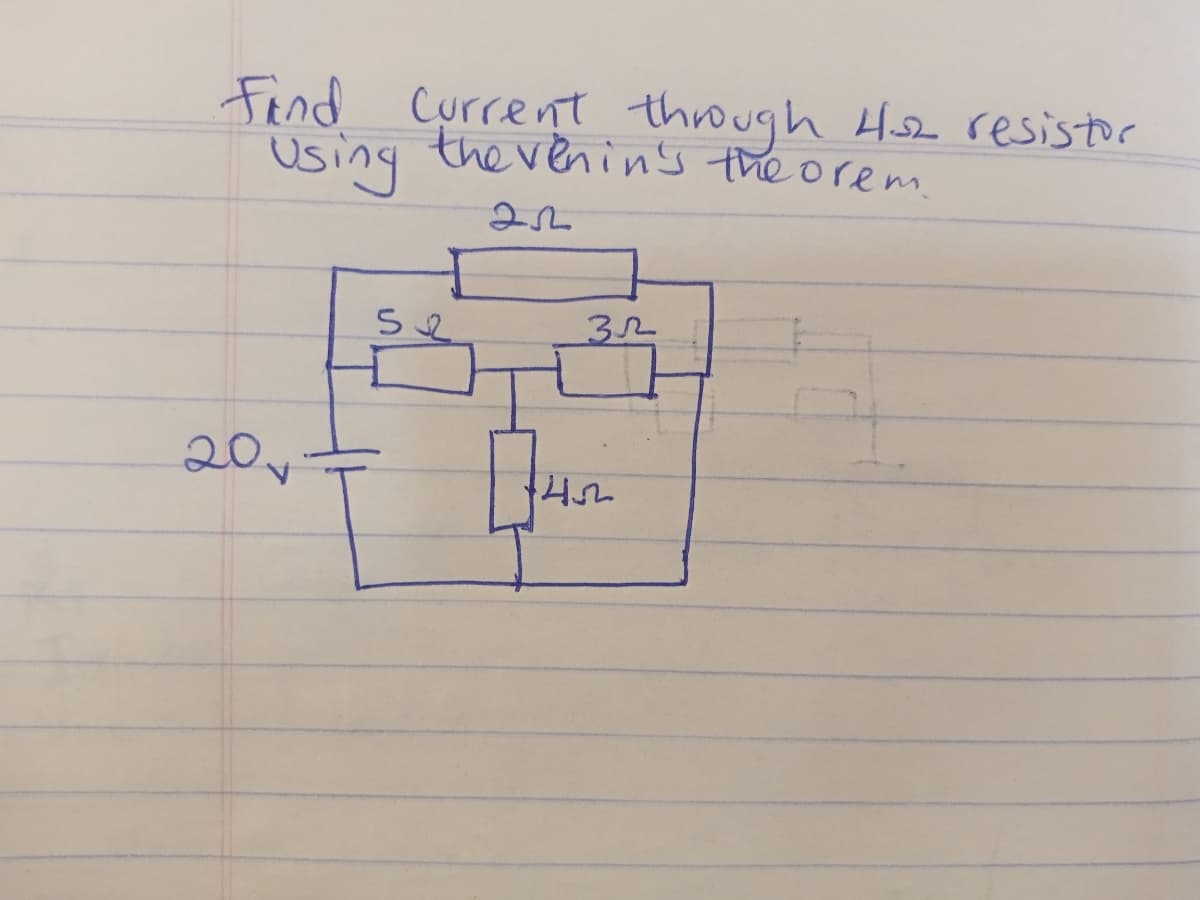 Find current through 4Ω resistor
Using thevenin's theorem.
2Ω
5Ω 3Ω
20v
4Ω